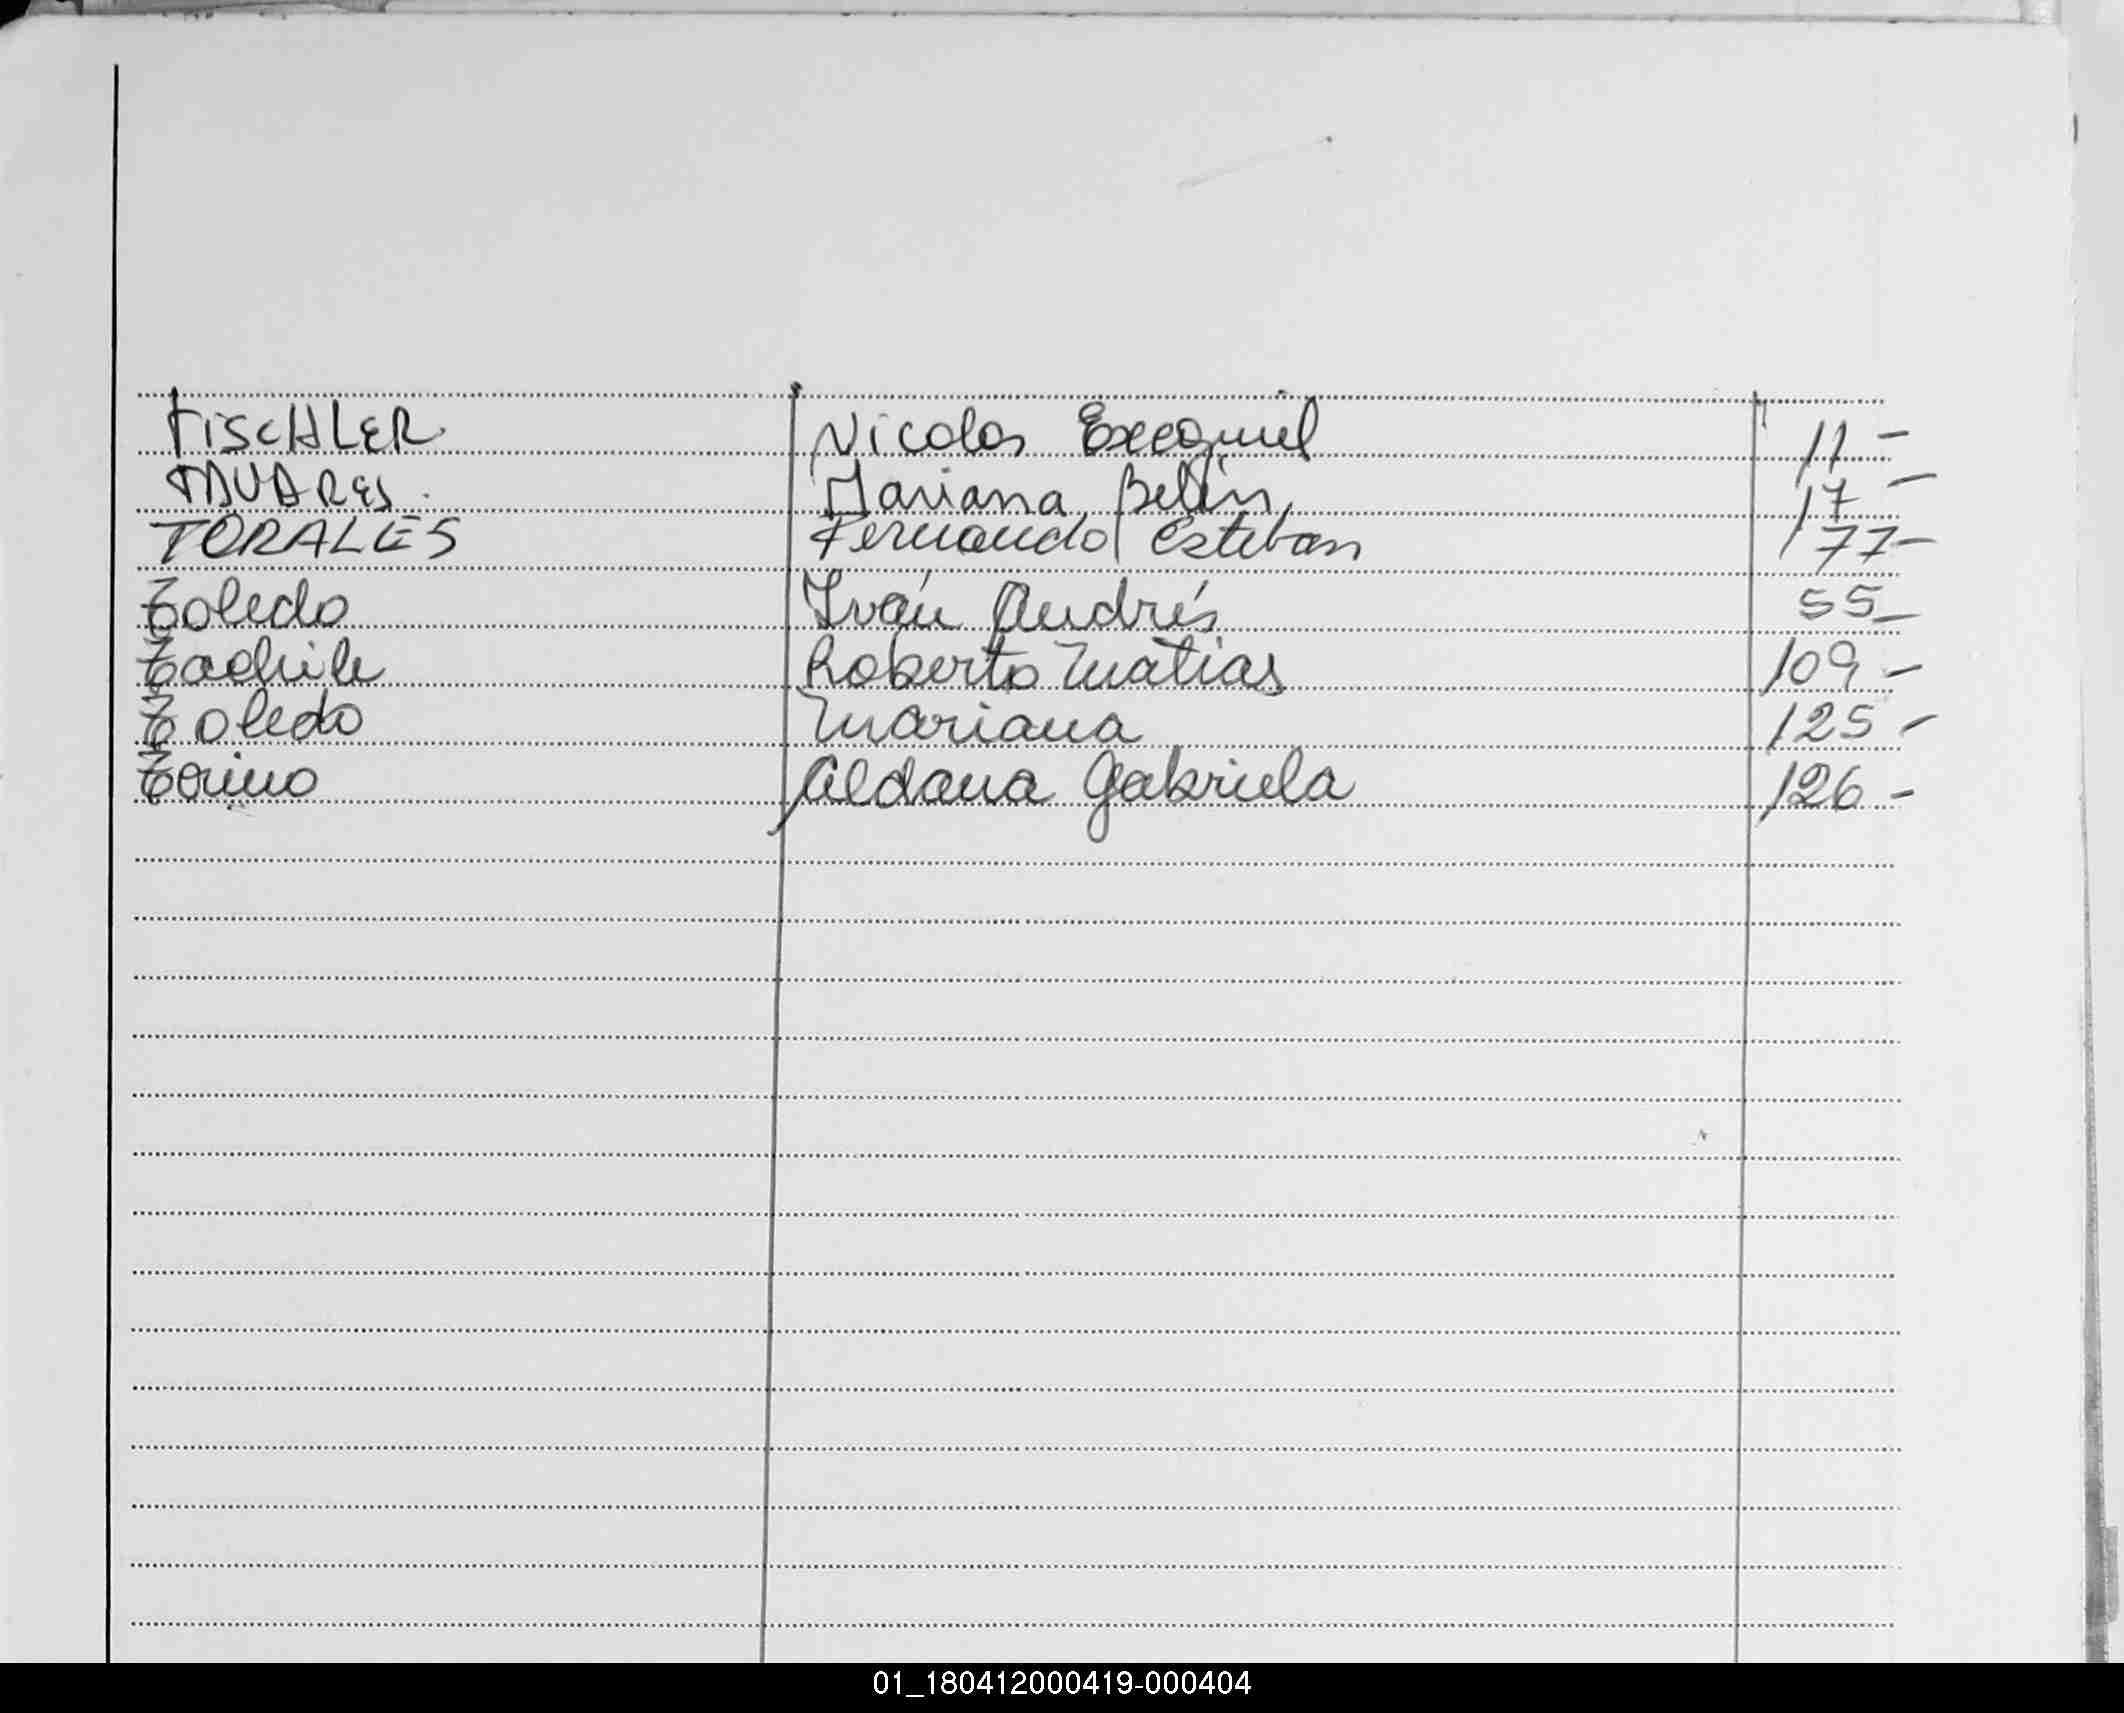 TISCHLER Nicolas Exequiel 11 -
TAVARES. Mariana Belén 17 -
TORALES Fernando Esteban 77 -
Toledo Iván Andrés 55 -
Roberto Matias 109 -
Toledo Mariana 125 -
Torino Aldana Gabriela 126 -
01_180412000419-000404